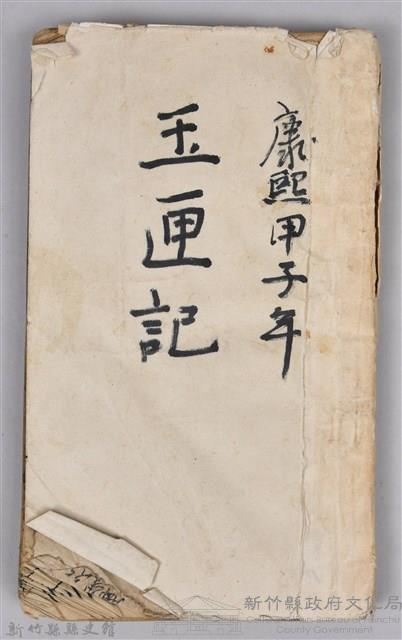 康熙甲子年
玉匣記
新竹縣政府文化局
County Government
新竹縣縣史館